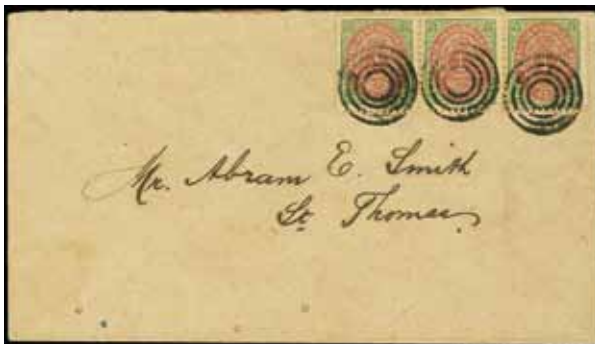 Mr. Abram E. Smith
St. Thomas.